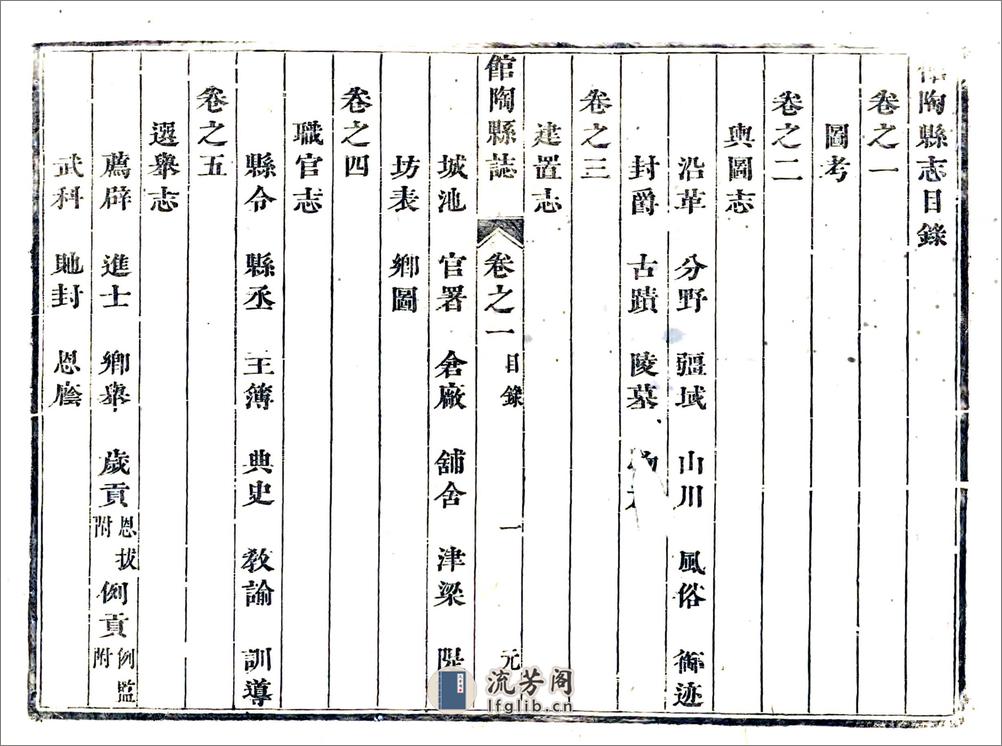 館陶縣志目錄
卷之一
圖考
卷之二
輿圖志
沿革 分野 疆域 山川 風俗 衛迹
封爵 古蹟 陵墓
卷之三
建置志
館陶縣誌 卷之一 目錄 一 元
城池 官署 倉廠 舖舍 津梁
坊表 鄉圖
卷之四
職官志
縣令 縣丞 主簿 典史 教諭 訓導
卷之五
選舉志
薦辟 進士 鄉舉 歲貢 恩拔附 例貢 例監附
武科 貤封 恩廕
流芳阁
lfglib.cn